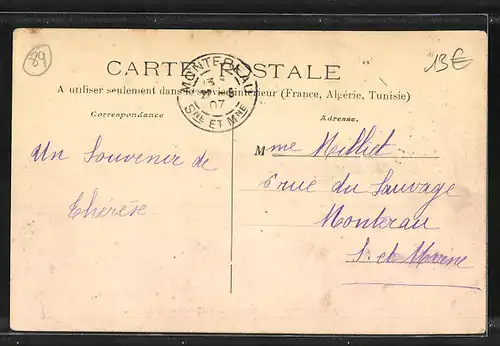 89
13€
CARTE POSTALE
A utiliser seulement dans le service intérieur (France, Algérie, Tunisie)
MONTEREAU
07
SNE ET MNE
Correspondance
Adresse.
Un Souvenir de
Thérèse
Mme Milliet
6 rue du Sauvage
Montereau
S. et Marne